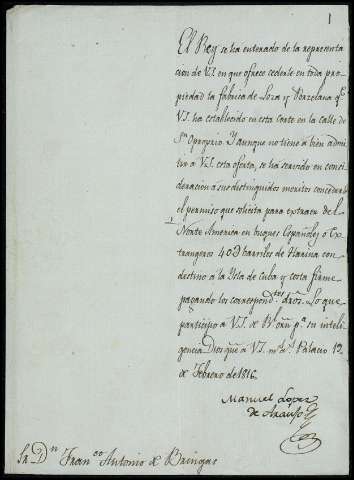 1
El Rey se ha enterado de la representa
cion de V.I. en que ofrece cederle en toda pro
piedad la fabrica de Loza y Porzelana qe.
V.I. ha establecido en esta corte en la calle de
Sn. Oproprio. Y aunque no tiene à bien admi
tir a V.I. esta oferta, se ha servido en consi
deracion a sus distinguidos meritos concederle
el permiso que solicita para extraer del
Norte America en buques Españoles ó Ex
trangeros 40 barriles de Harina con
destino a la Ysla de Cuba y costa firme
pagando los correspondtes. dros. Lo que
participo a V.I. de Rl. orñ pa. su inteli
gencia. Dios gūe a V.I. ms. as. Palacio 12
de Febrero de 1816.
Manuel Lopez
de Araujo
Sr. Dn. Franco. Antonio de Bringas